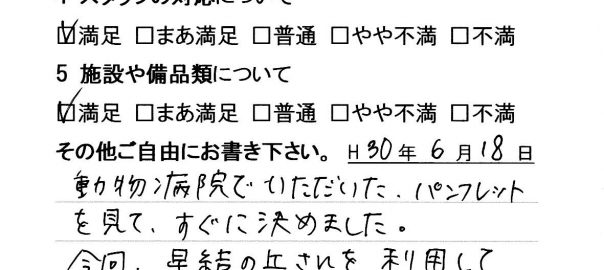 4 スタッフの対応について
☑満足 □まあ満足 □普通 □やや不満 □不満
5 施設や備品類について
☑満足 □まあ満足 □普通 □やや不満 □不満
その他ご自由にお書き下さい。 H30年 6月18日
動物病院でいただいた、パンフレット
を見て、すぐに決めました。
今回、 利用して